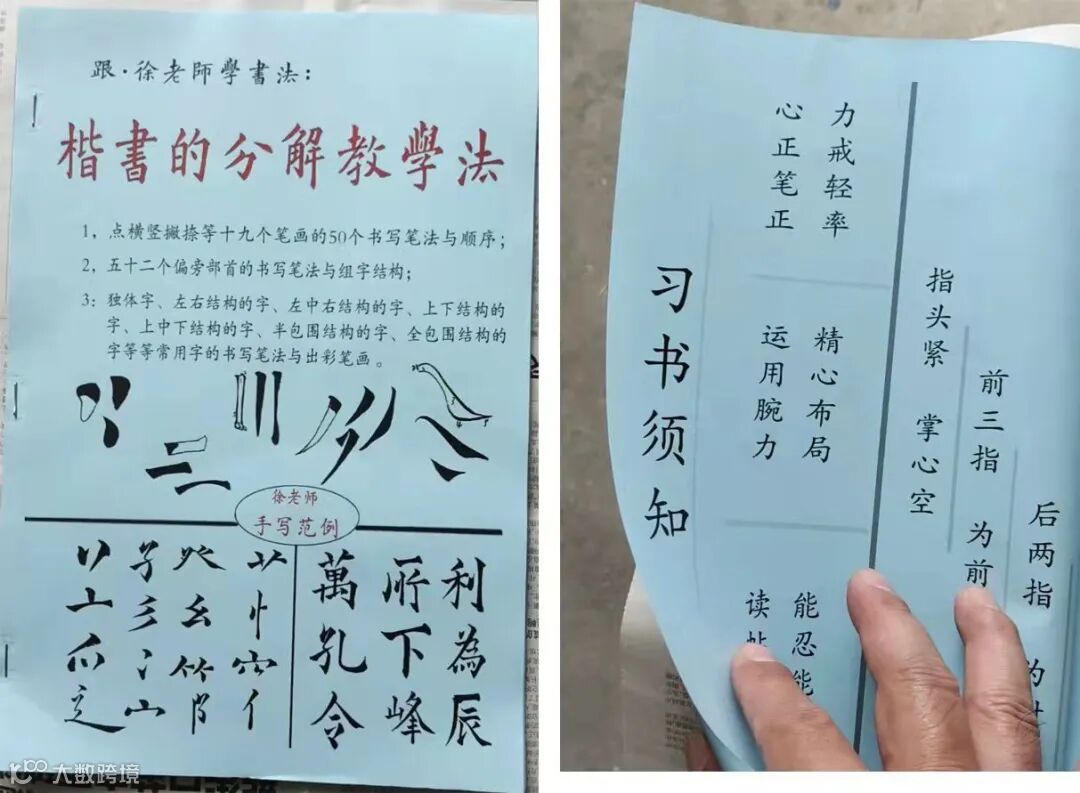 跟·徐老師學書法：
楷書的分解教學法
1，点横竖撇捺等十九个笔画的50个书写笔法与顺序；
2，五十二个偏旁部首的书写笔法与组字结构；
3：独体字、左右结构的字、左中右结构的字、上下结构的
字、上中下结构的字、半包围结构的字、全包围结构的
字等等常用字的书写笔法与出彩笔画。
徐老师
手写范例
萬 所 利
孔 下 為
令 峰 辰
习书须知
心正笔正
力戒轻率
运用腕力
精心布局
读
能忍能
指头紧
掌心空
前三指 为前
后两指 为
大数跨境